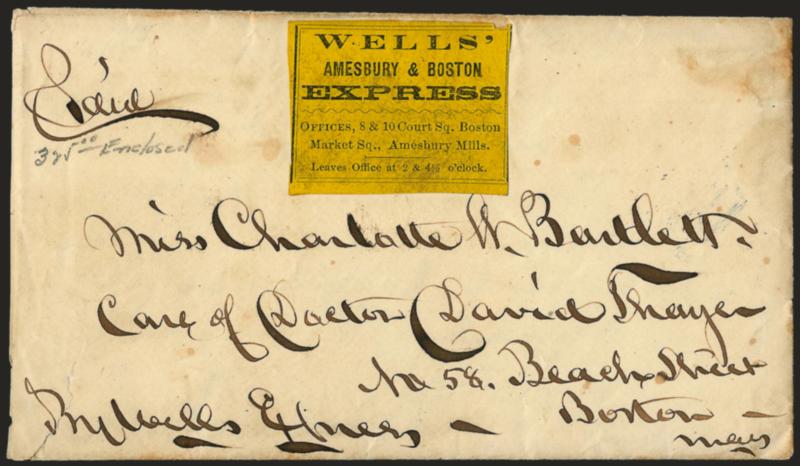 Paid
325⁰⁰ Enclosed
WELLS'
AMESBURY & BOSTON
EXPRESS
OFFICES, 8 & 10 Court Sq. Boston
Market Sq., Amesbury Mills.
Leaves Office at 2 & 4½ o'clock.
Miss Charlotte W. Bartlett.
Care of Doctor David Thayer
No 58. Beach Street
Boston
Mass
By Wells Express